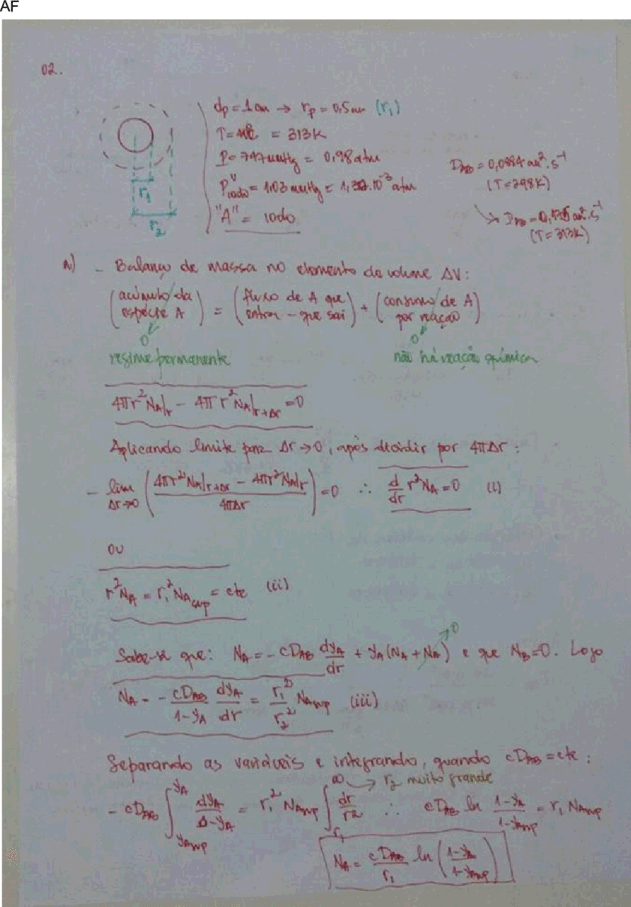 AF
02.
dp = 1cm → rp = 0,5cm (r₁)
T = 40°C = 313K
P = 747mmHg = 0,98 atm
P"iodo" = 1,03 mmHg = 10⁻³ atm
"A" = iodo
r₁
r₂
D_AB = 0,0884 cm².s⁻¹
(T=298K)
↘ D_AB = cm².s⁻¹
(T=313K)
a) - Balanço de massa no elemento de volume ΔV:
(acúmulo da espécie A) = (fluxo de A que entra - que sai) + (consumo de A por reação)
0 0
regime permanente não há reação química
4πr²N_A|r - 4πr²N_A|r+Δr = 0
Aplicando limite para Δr→0, após dividir por 4πΔr:
- lim Δr→0 ((4πr²N_A|r+Δr - 4πr²N_A|r)/4πΔr) = 0 ∴ d/dr r²N_A = 0 (i)
ou
r²N_A = r₁²N_Asup = cte (ii)
Sabe-se que: N_A = -cD_AB dy_A/dr + y_A(N_A + N_B) → 0 e que N_B = 0. Logo
N_A = - cD_AB/(1-y_A) dy_A/dr = r₁²/r₂² N_Asup (iii)
Separando as variáveis e integrando, quando cD_AB = cte:
∞ → r₂ muito grande
- cD_AB ∫_{y_Asup}^{y_A} dy_A/(1-y_A) = r₁² N_Asup ∫_{r₁}^{∞} dr/r² ∴ cD_AB ln (1-y_A)/(1-y_Asup) = r₁ N_Asup
N_A = cD_AB/r₁ ln((1-y_A)/(1-y_Asup))